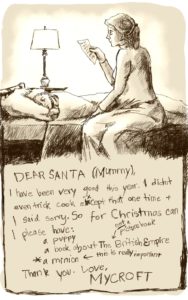 DEAR SANTA (Mummy),
I have been very good this year. I didn't
even trick cook except that one time +
I said sorry. So for Christmas can
I please have:
a puppy
a book about The British Empire
* a minion ← this is really important
Thank you. Love,
MYCROFT